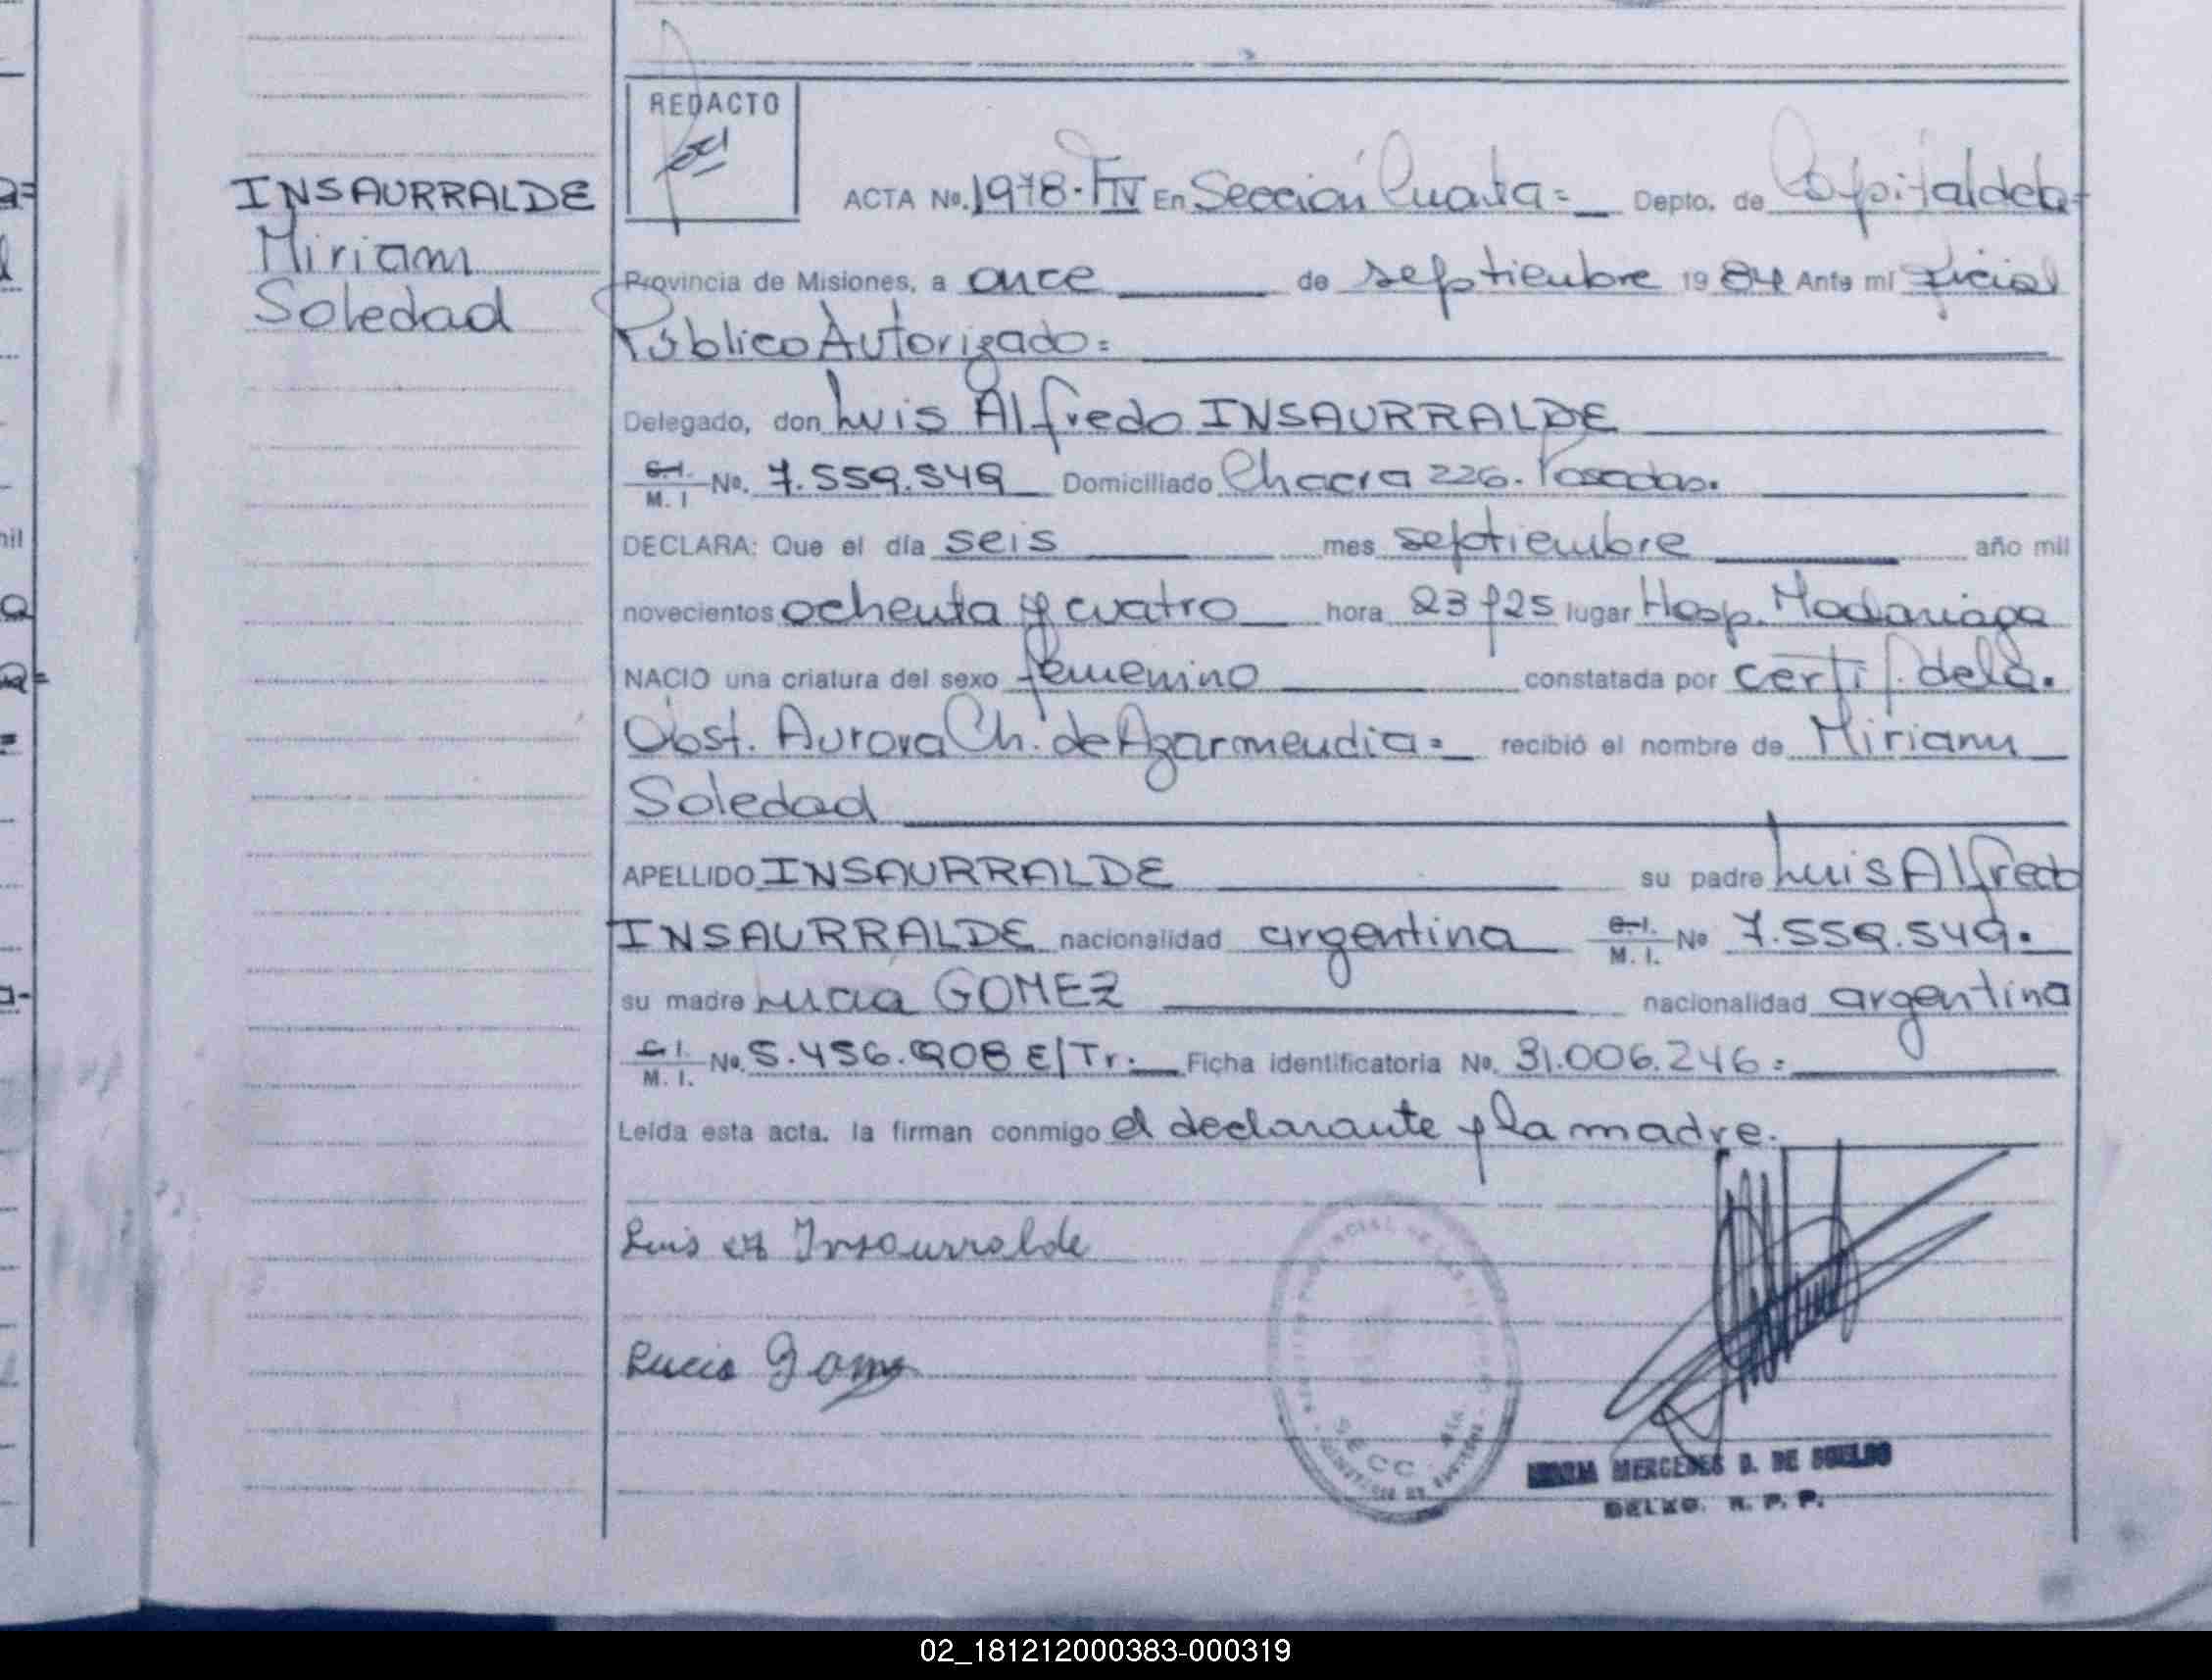 REDACTO
INSAURRALDE
Miriam
Soledad
ACTA No. 1978-TIV En Sección Cuarta=_ Depto. de Capital de la
Provincia de Misiones, a once de septiembre 19 84 Ante mí Oficial
Público Autorizado=
Delegado, don Luis Alfredo INSAURRALDE
C.I. M. I No. 7.559.549 Domiciliado Chacra 226. Posadas.
DECLARA: Que el día seis mes septiembre año mil
novecientos ochenta y cuatro hora 23 y 25 lugar Hosp. Madariaga
NACIO una criatura del sexo femenino constatada por certif. de la.
Obst. Aurora Ch. de Azarmendia=_ recibió el nombre de Miriam
Soledad
APELLIDO INSAURRALDE su padre Luis Alfredo
INSAURRALDE nacionalidad argentina C.I. M. I. No 7.559.549.
su madre Lucia GOMEZ nacionalidad argentina
C.I. M. I. No. 5.456.908 E/Tr.=_ Ficha identificatoria No. 31.006.246=
Leída esta acta, la firman conmigo el declarante y la madre.
Luis Insaurralde
Lucia Gomez
SECC. 4ta.
MERCEDES D. DE
R. P. P.
02_181212000383-000319